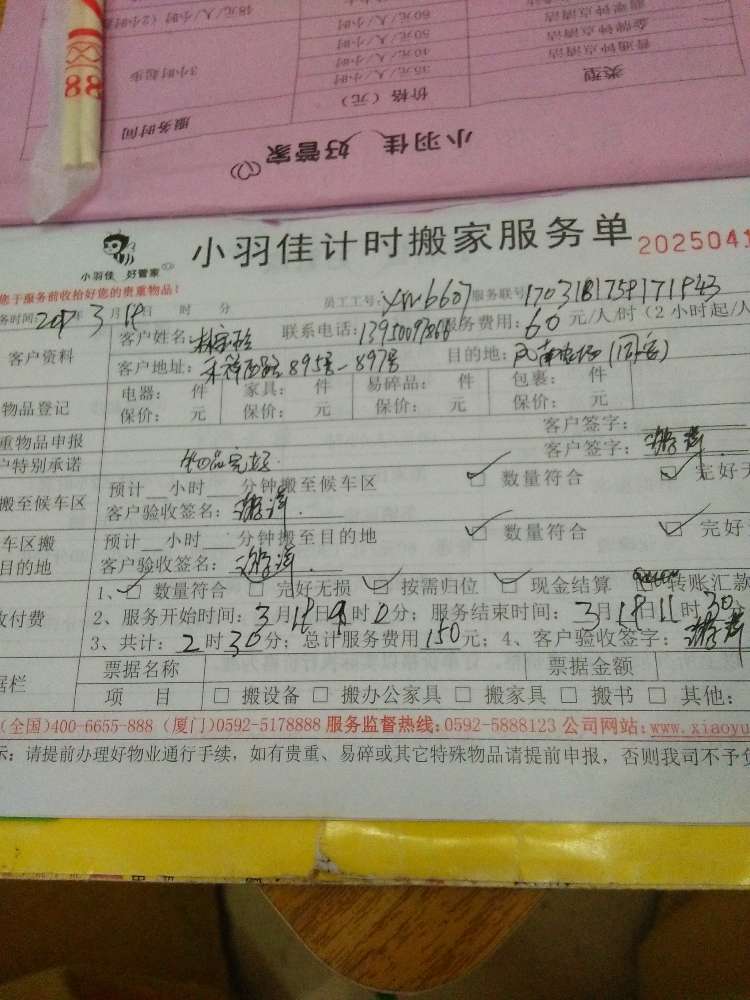 48元/人/小时（2小时
60元/人/小时
50元/人/小时
金牌钟点清洁
40元/人/小时
普通钟点清洁
3小时起步
35元/人/小时
类型
价格（元）
服务时间
小羽佳 好管家
88
小羽佳 好管家
小羽佳计时搬家服务单
2025041
您于服务前收拾好您的贵重物品！
务时间: 3月18日 时 分
员工工号: 服务联号:
客户资料
客户姓名: 联系电话: 服务费用: 60 元/人/时（2小时起/人
客户地址: 895号-897号 目的地:
物品登记
电器: 件 家具: 件 易碎品: 件 包裹: 件
保价: 元 保价: 元 保价: 元 保价: 元
重物品申报
客户签字:
户特别承诺 物品完好 客户签字:
搬至候车区
预计__小时__分钟搬至候车区 数量符合 完好无
客户验收签名:
车区搬
目的地
预计__小时__分钟搬至目的地 数量符合 完好
客户验收签名:
收付费
1、 数量符合 完好无损 按需归位 现金结算 转账汇款
2、服务开始时间: 3月18日9时0分; 服务结束时间: 3月18日11时30
3、共计: 2时30分; 总计服务费用150元; 4、客户验收签字:
据栏
票据名称 票据金额
项 目 搬设备 搬办公家具 搬家具 搬书 其他:
(全国)400-6655-888 (厦门)0592-5178888 服务监督热线:0592-5888123 公司网站:www.xiaoyu
示: 请提前办理好物业通行手续，如有贵重、易碎或其它特殊物品请提前申报，否则我司不予